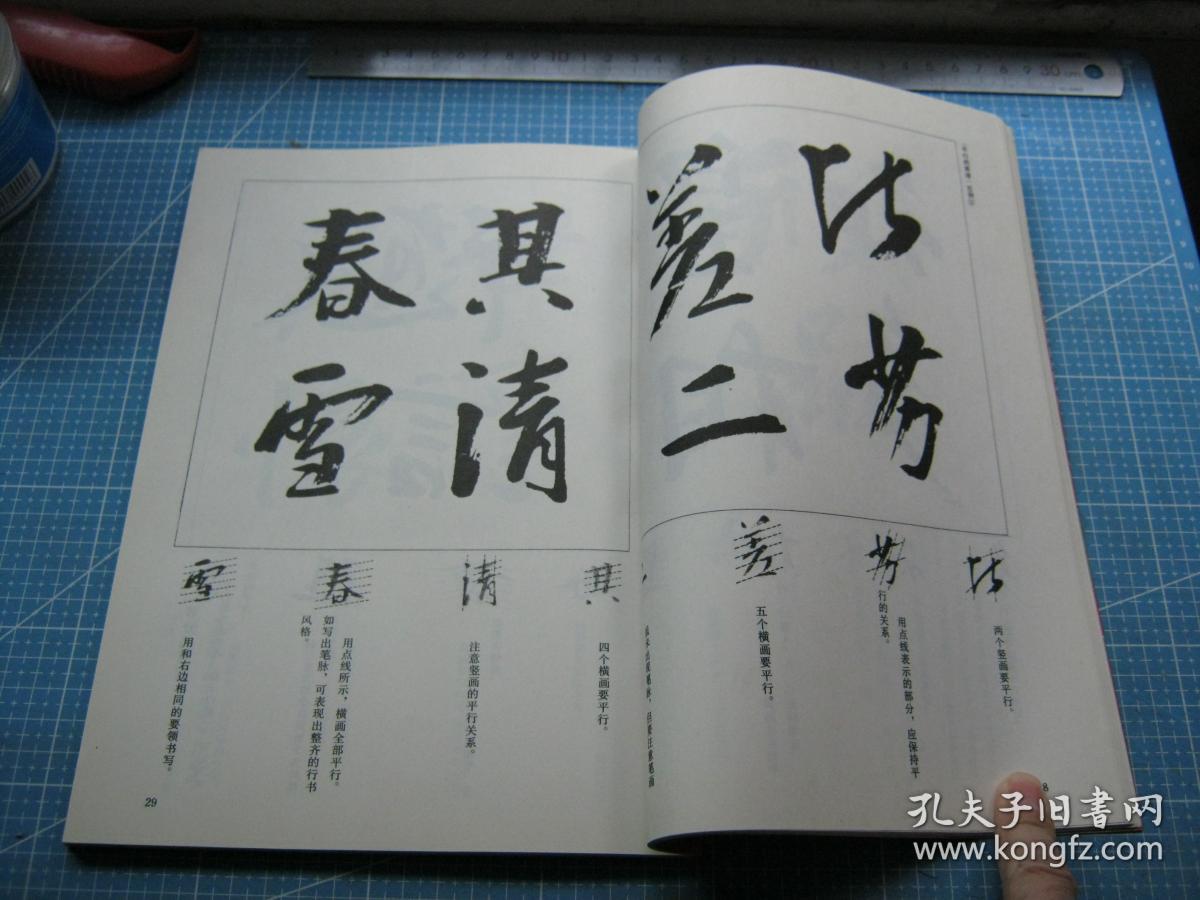 比芳
差二
两个竖画要平行。
用点线表示的部分，应保持平
行的关系。
五个横画要平行。
但要注意笔画
8
其清
春雪
四个横画要平行。
注意竖画的平行关系。
用点线所示，横画全部平行。
如写出笔脉，可表现出整齐的行书
风格。
用和右边相同的要领书写。
29
30 cm
孔夫子旧书网
www.kongfz.com